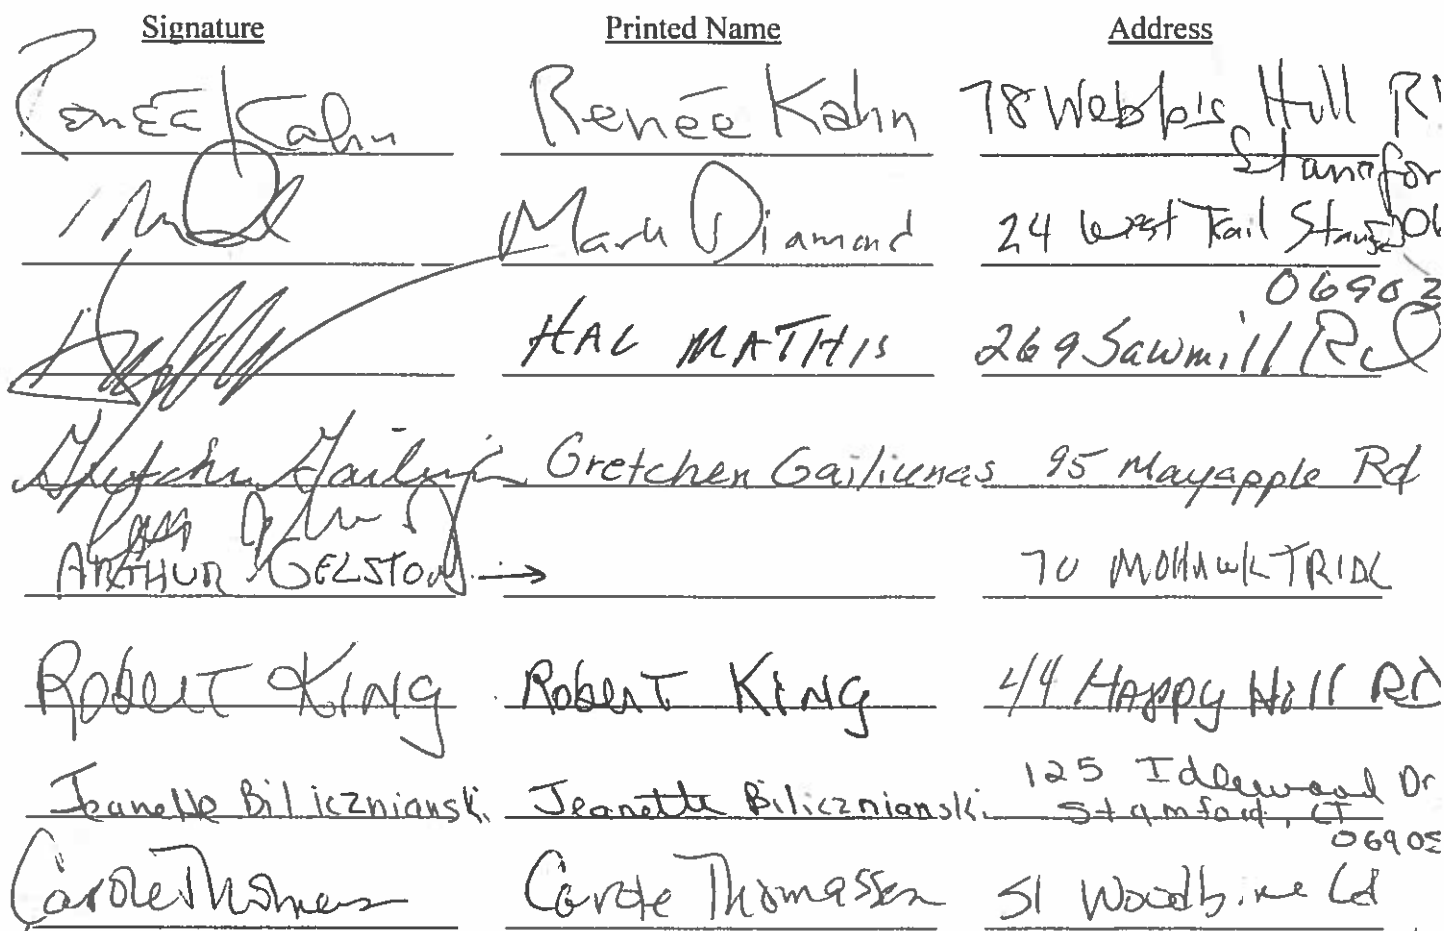 Signature Printed Name Address
Renée Kahn Renée Kahn 78 Webb's Hill R
Stamfor
Mark Diamond 24 West Trail Stamf 06
06902
HAL MATHIS 269 Sawmill Rd
Gretchen Gailiunas Gretchen Gailiunas 95 Mayapple Rd
ARTHUR GELSTON → 70 MOHAWK TRIAL
Robert King Robert King 44 Happy Hill Rd
Jeanette Bilicznianski Jeanette Bilicznianski 125 Idlewood Dr
Stamford, CT
06905
Carole Thomassen Carole Thomassen 51 Woodbine Rd